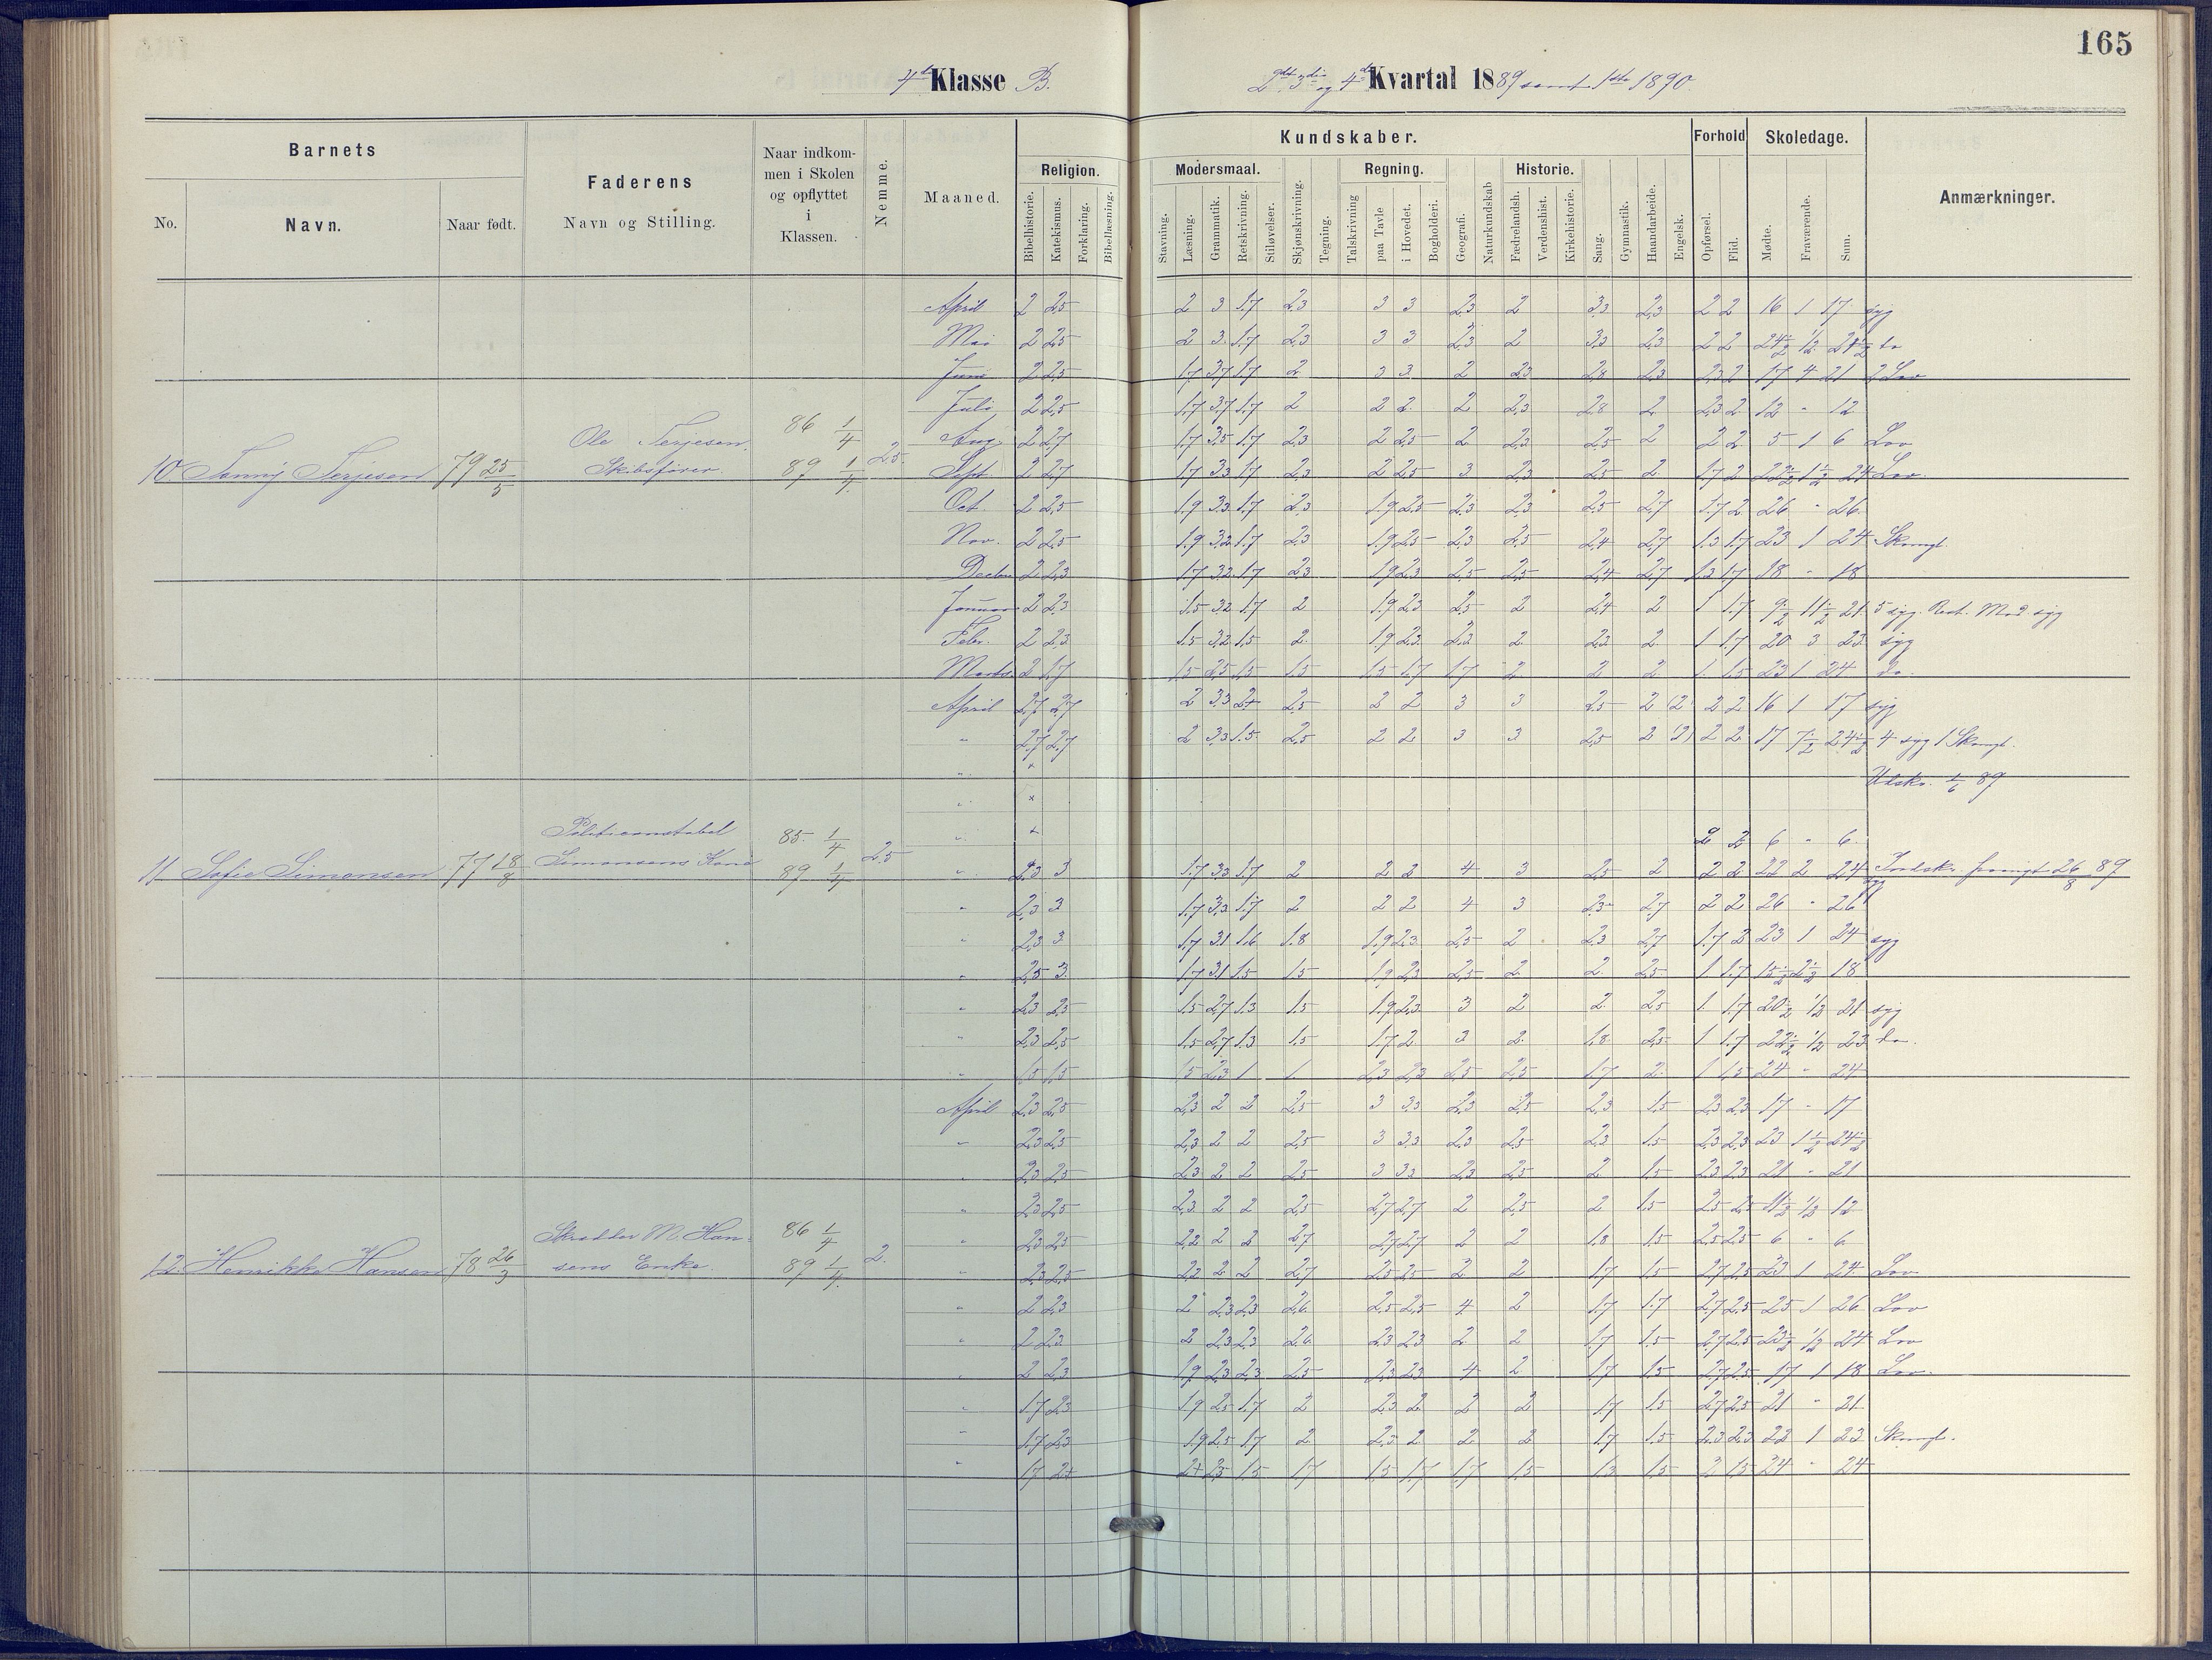 165
4de Klasse B. 2det 3die og 4de Kvartal 1889 samt 1ste 1890.
Barnets
No.
Navn.
Naar født.
Faderens
Navn og Stilling.
Naar indkom-
men i Skolen
og opflyttet
i
Klassen.
Nemme.
Maaned.
Kundskaber.
Religion.
Bibelhistorie.
Katekismus.
Forklaring.
Bibellæsning.
Modersmaal.
Stavning.
Læsning.
Grammatik.
Retskrivning.
Stiløvelser.
Skjønskrivning.
Tegning.
Regning.
Talskrivning
paa Tavle
i Hovedet.
Bogholderi.
Geografi.
Naturkundskab
Historie.
Fædrelandsh.
Verdenshist.
Kirkehistorie.
Sang.
Gymnastik.
Haandarbeide.
Engelsk.
Forhold
Opførsel.
Flid.
Skoledage.
Mødte.
Fraværende.
Sum.
Anmærkninger.
April 2 2,5 2 3 1,7 2,3 3 3 2,3 2 3,3 2,3 2 2 16 1 17 syg
Mai 2 2,5 2 3 1,7 2,3 3 3 2,3 2 3,3 2,3 2 2 24½ ½ do
Juni 2 2,5 1,7 3,7 1,7 2 3 3 2 2,3 2,8 2,3 2,3 2 17 4 21 2 Lov
Juli 2 2,5 1,7 3,7 1,7 2 2 2 2 2,3 2,8 2 2,3 2 12 - 12
Aug. 2 2,7 1,7 3,5 1,7 2,3 2 2,5 2 2,3 2,5 2 2 2 5 1 6 Lov
10 Fanny Terjesen 79 25/5 Ole Terjesen Skibsfører 86 1/4 89 1/4 2,5 Sept 2 2,7 1,7 3,3 1,7 2,3 2 2,5 3 2,3 2,5 2 1,7 2 22½ 1½ 24 Lov
Oct. 2 2,5 1,9 3,3 1,7 2,3 1,9 2,5 2,3 2,3 2,5 2,7 1,7 2 26 - 26
Nov. 2 2,5 1,9 3,2 1,7 2,3 1,9 2,5 2,3 2,5 2,4 2,7 1,3 1,7 23 1 24 Skomgl.
Decbr 2 2,3 1,7 3,2 1,7 2,3 1,9 2,3 2,5 2,5 2,4 2,7 1,3 1,7 18 - 18
Januar 2 2,3 1,5 3,2 1,7 2 1,9 2,3 2,5 2 2,4 2 1 1,7 9½ 11½ 21 5 syg. Rest. Mod. syg
Febr. 2 2,3 1,5 3,2 1,5 2 1,9 2,3 2,3 2 2,3 2 1 1,7 20 3 23 syg
Marts 2 1,7 1,5 2,5 1,5 1,5 1,5 1,7 1,7 2 2 2 1 1,5 23 1 24 do.
April 2,7 2,7 2 3,3 2+ 2,5 2 2 3 3 2,5 2 2 2 16 1 17 syg
" 2,7 2,7 2 3,3 1,5 2,5 2 2 3 3 2,5 2 2 2 17 7½ 24½ 4 syg 1 Skomgl.
" × Udskr. 1/6 89
" ×
" × 2 2 6 - 6
11 Sofie Simonsen 77 18/8 Politiconstabel Simonsens Kone 85 1/4 89 1/4 2,5 " 2,3 3 1,7 3,3 1,7 2 2 2 4 3 2,5 2 2 2 22 2 24 Indskr. 26/8 89 syg
" 2,3 3 1,7 3,3 1,7 2 2 2 4 3 2,3 2,7 2 2 26 - 26
" 2,3 3 1,7 3,1 1,6 1,8 1,9 2,3 2,5 2 2,3 2,7 1,7 2 23 1 24 syg
" 2,5 3 1,7 3,1 1,5 1,5 1,9 2,3 2,5 2 2 2,5 1 1,7 15½ 2½ 18
" 2,3 2,5 1,5 2,7 1,3 1,5 1,9 2,3 3 2 2 2,5 1 1,7 20½ ½ 21 syg
" 2,3 2,5 1,5 2,7 1,3 1,5 1,7 2 3 2 1,8 2,5 1 1,7 22½ ½ 23 do.
" 1,5 1,5 1,5 2,3 1 1 2,3 2,3 2,5 2,5 1,7 2 1 1,5 24 - 24
April 2,3 2,5 2,3 2 2 2,5 3 3,3 2,3 2,5 2,3 1,5 2,3 2,3 17 - 17
" 2,3 2,5 2,3 2 2 2,5 3 3,3 2,3 2,5 2,3 1,5 2,3 2,3 23 1½ 24½
" 2,3 2,5 2,3 2 2 2,5 3 3,3 2,3 2,5 2 1,5 2,3 2,3 21 - 21
" 2,3 2,5 2,3 2 2 2,5 2,7 2,7 2 2,5 2 1,5 2,5 2,5 11½ ½ 12
" 2,3 2,5 2,2 2 2 2,7 2,7 2,7 2 2 1,8 1,5 2,5 2,5 6 - 6
12. Henrikke Hansen 78 26/3 Skrædder M. Han-
sens Enke. 86 1/4 89 1/4 2. " 2,3 2,5 2,2 2 2 2,7 2,5 2,5 2 2 1,7 1,5 2,7 2,5 23 1 24 Lov
" 2 2,3 2 2,3 2,3 2,6 2,5 2,5 4 2 1,7 1,7 2,7 2,5 25 1 26 Lov
" 2 2,3 2 2,3 2,3 2,6 2,3 2,3 2 2 1,7 1,5 2,7 2,5 23½ ½ 24 Lov
" 2 2,3 1,9 2,3 2,3 2,5 2,3 2,3 4 2 1,7 1,5 2,7 2,5 17 1 18 Lov.
" 1,7 2,3 1,9 2,5 1,7 2 2,3 2 2 2 1,7 1,5 2,7 2,5 21 - 21
" 1,7 2,3 1,9 2,5 1,7 2 2,3 2 2 2 1,7 1,5 2,3 2,3 22 1 23 Skomgl.
" 1,7 2+ 2+ 2,5 1,5 1,7 1,5 1,7 1,7 1,5 1,3 1,5 2 1,5 24 - 24